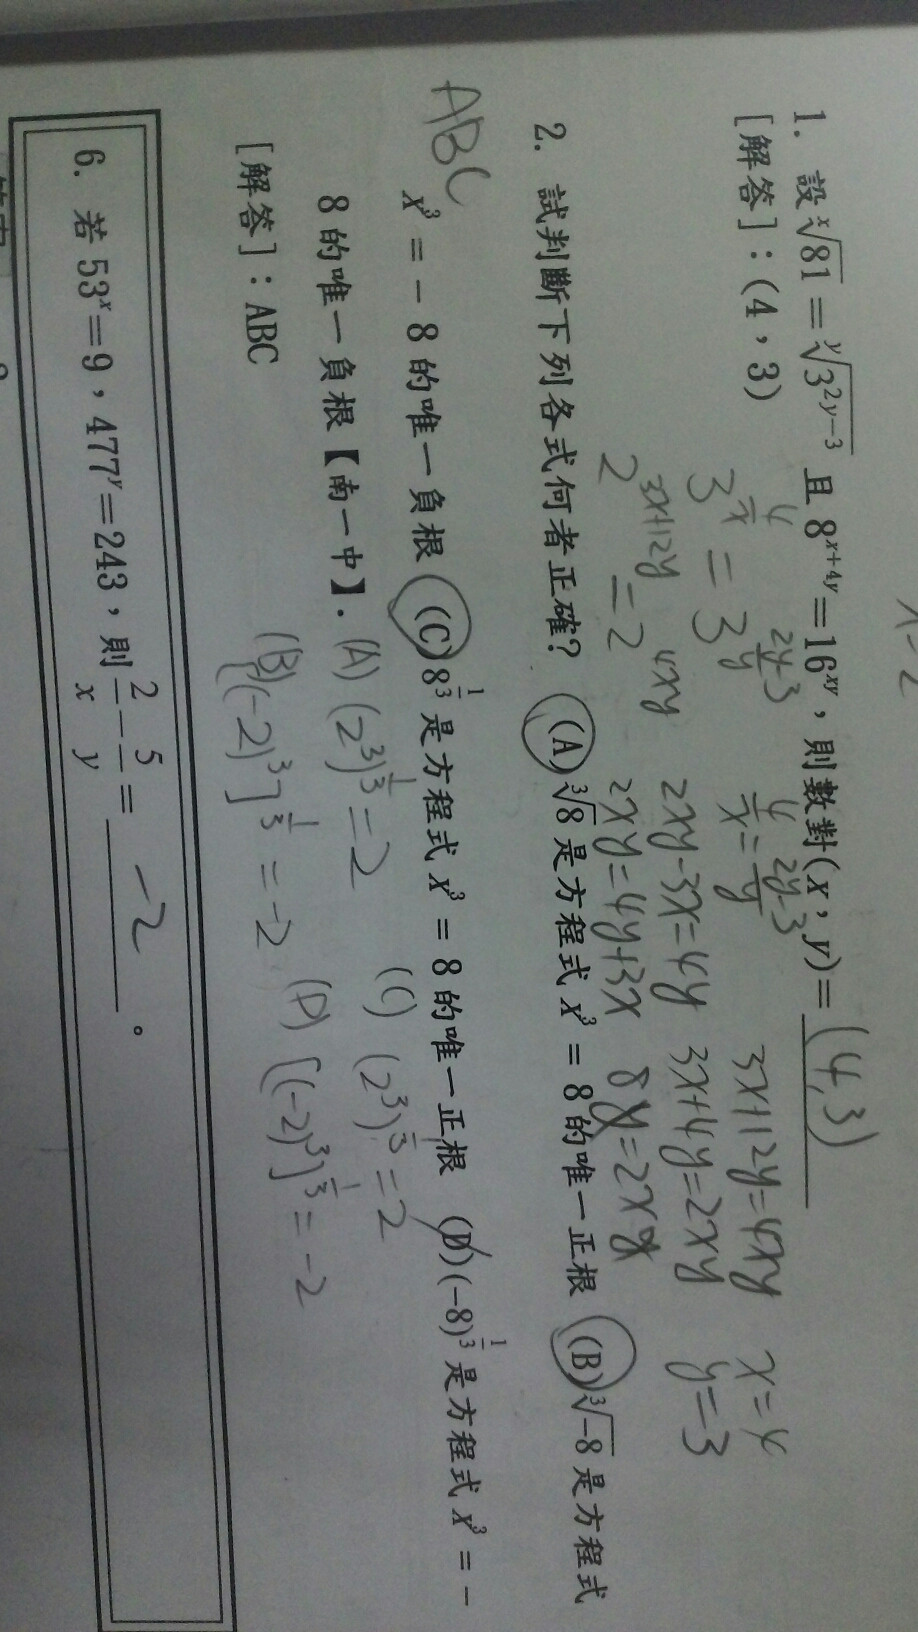 1. 設 ˣ√81 = ʸ√3²ʸ⁻³ 且 8ˣ⁺⁴ʸ=16ˣʸ，則數對(x，y)= (4,3)
[解答]：(4，3)
3^(4/x) = 3^((2y-3)/y)
4/x = (2y-3)/y
2xy-3x=4y
2xy=4y+3x
2^(3x+12y) = 2^(4xy)
3x+12y=4xy
3x+4y=2xy
8y=2xy
x=4
y=3
2. 試判斷下列各式何者正確？ (A)³√8 是方程式 x³ = 8 的唯一正根 (B)³√-8 是方程式
x³ = - 8 的唯一負根 (C)8^(1/3) 是方程式 x³ = 8 的唯一正根 (D)(-8)^(1/3) 是方程式 x³ = -
8 的唯一負根【南一中】.
ABC
(A) (2³)^(1/3) = 2
(C) (2³)^(1/3) = 2
(B) [(-2)³]^(1/3) = -2
(D) [(-2)³]^(1/3) = -2
[解答]：ABC
6. 若 53ˣ=9，477ʸ=243，則 2/x - 5/y = -2 。